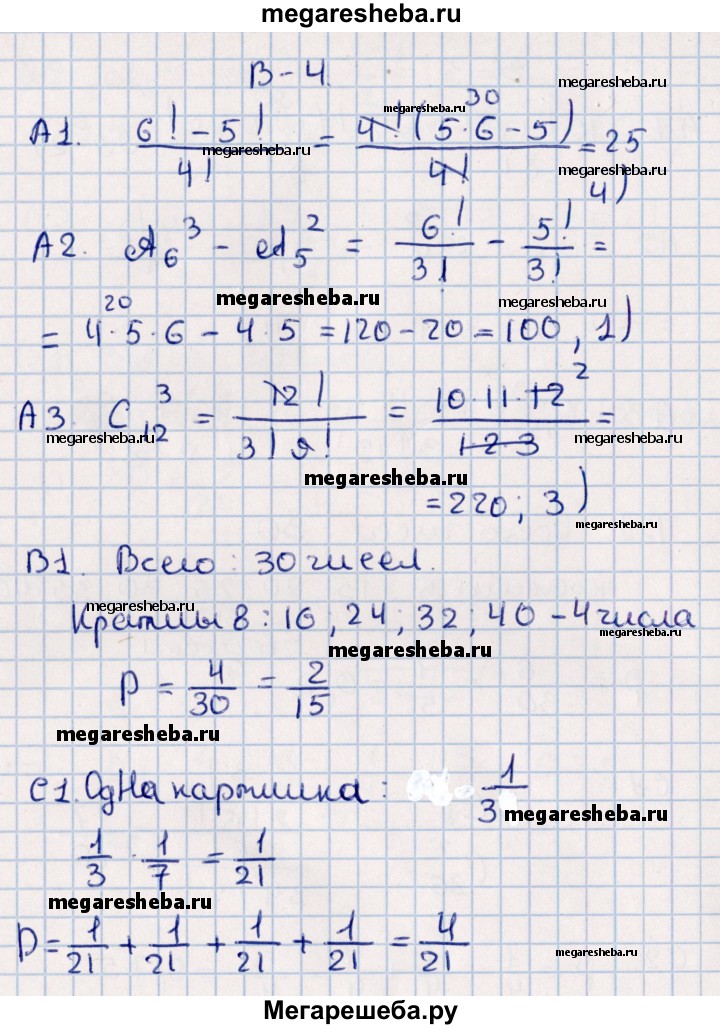 megaresheba.ru
В-4.
megaresheba.ru
A1. (6! - 5!)/4! = 4!(5·6 - 5)/4! = 25
30
megaresheba.ru
megaresheba.ru
megaresheba.ru
4)
A2. A₆³ - A₅² = 6!/3! - 5!/3! =
megaresheba.ru
20
megaresheba.ru
megaresheba.ru
= 4·5·6 - 4·5 = 120 - 20 = 100, 1)
A3. C₁₂³ = 12!/(3! 9!) = (10·11·12)/(1·2·3) =
2
megaresheba.ru
megaresheba.ru
megaresheba.ru
= 220; 3)
megaresheba.ru
B1. Всего: 30 чисел.
megaresheba.ru
Кратны 8: 16; 24; 32; 40 - 4 числа
megaresheba.ru
megaresheba.ru
P = 4/30 = 2/15
megaresheba.ru
C1. Одна картинка: 1/3
megaresheba.ru
1/3 · 1/7 = 1/21
megaresheba.ru
P = 1/21 + 1/21 + 1/21 + 1/21 = 4/21
megaresheba.ru
Мегарешеба.ру